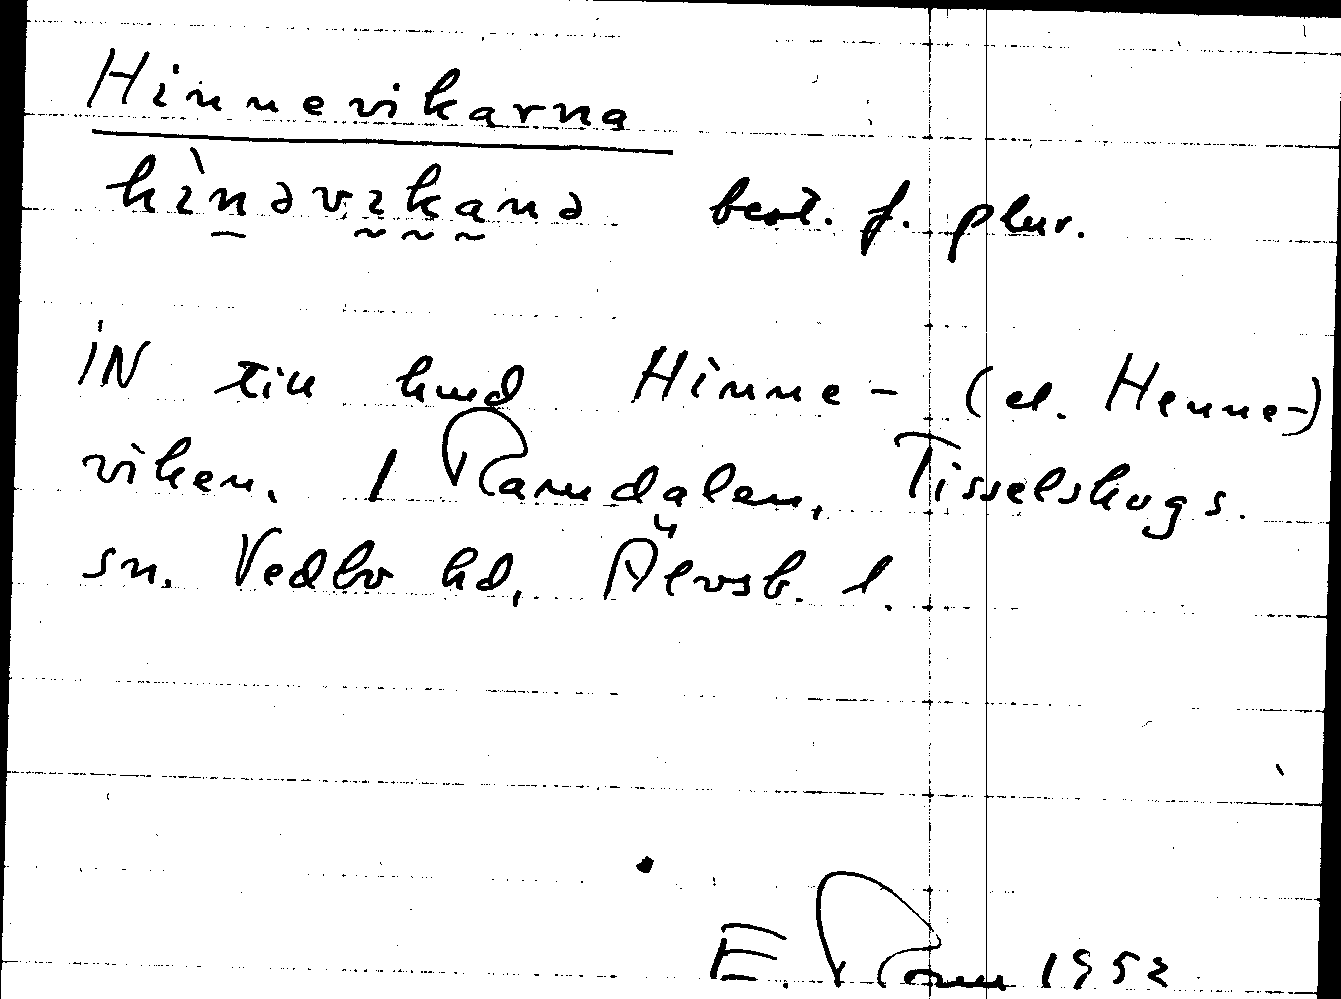 Hinnevikarna
hìnəvikanə best. f. plur.
IN till hmd Hinne- (el. Henne-)
viken. I Ramdalen, Tisselskogs
sn. Vedbo hd, Älvsb. l.
E. 1952